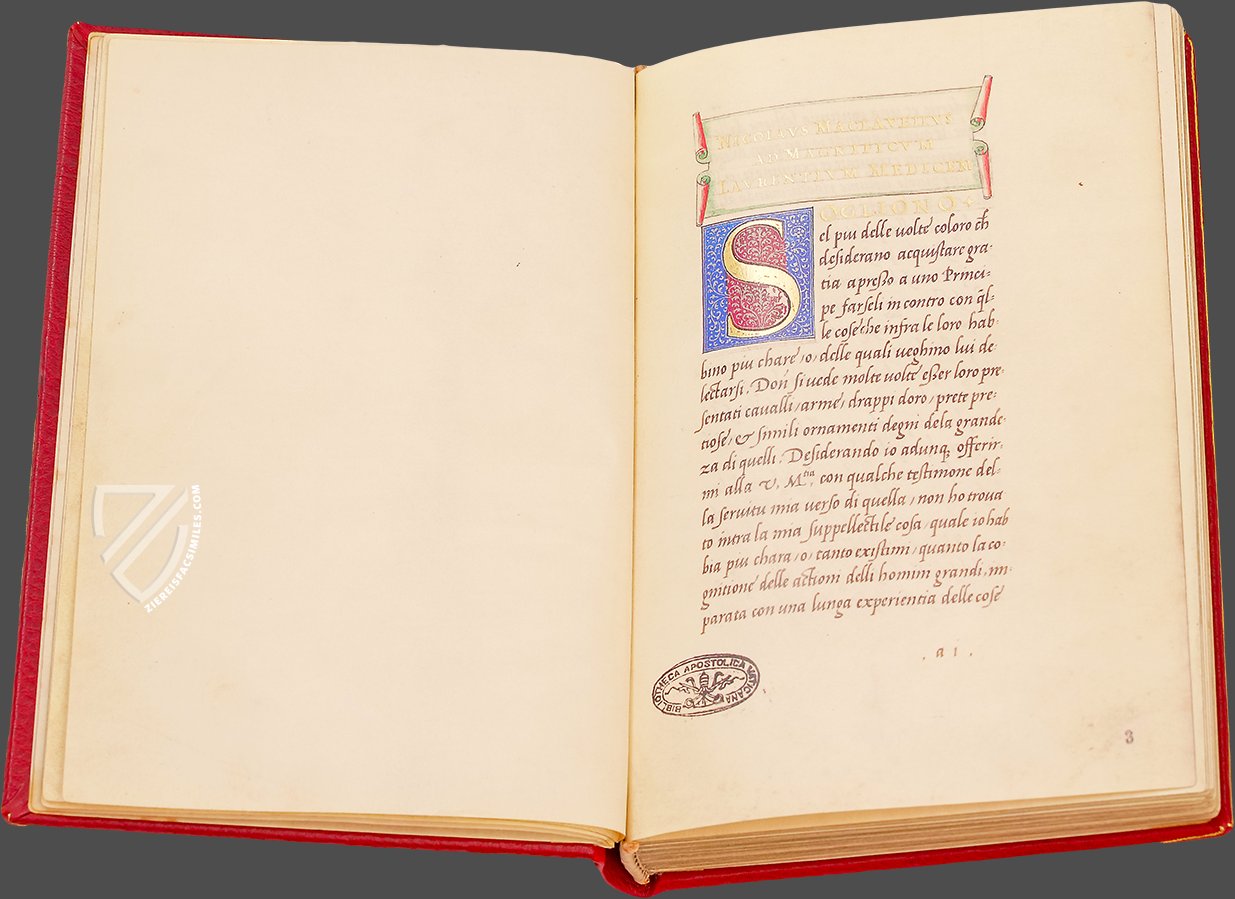 NICOLAVS MACLAVELLVS
AD MAGNIFICVM
LAVRENTIVM MEDICEM
SOGLIONO
el piu delle uolte coloro ch̄
desiderano acquistare gra-
tia apresso a uno Princi-
pe farseli in contro con q̄l-
le cose che infra le loro hab-
bino piu chare, o, delle quali ueghino lui de-
lectarsi. Don̄ si uede molte uolte esser loro pre-
sentati caualli, arme, drappi doro, prete pre-
tiose, & simili ornamenti degni dela grande-
za di quelli. Desiderando io adunq; offerir-
mi alla V. M.tia con qualche testimone del-
la seruitu mia uerso di quella, non ho troua
to intra la mia suppellectile cosa, quale io hab
bia piu chara, o, tanto existimi, quanto la co-
gnitione delle actioni delli homini grandi, im-
parata con una lunga experientia delle cose
. a 1 .
BIBLIOTHECA APOSTOLICA VATICANA
3
ZIEREISFACSIMILES.COM